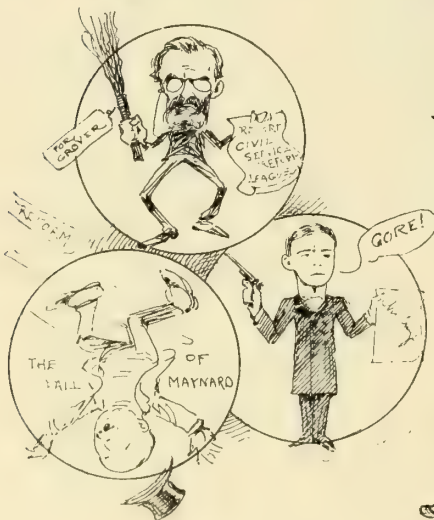 FOR
GROVER
CIVIL
SERVICE
REFORM
LEAGUE
REFORM
GORE!
THE
FALL
OF
MAYNARD